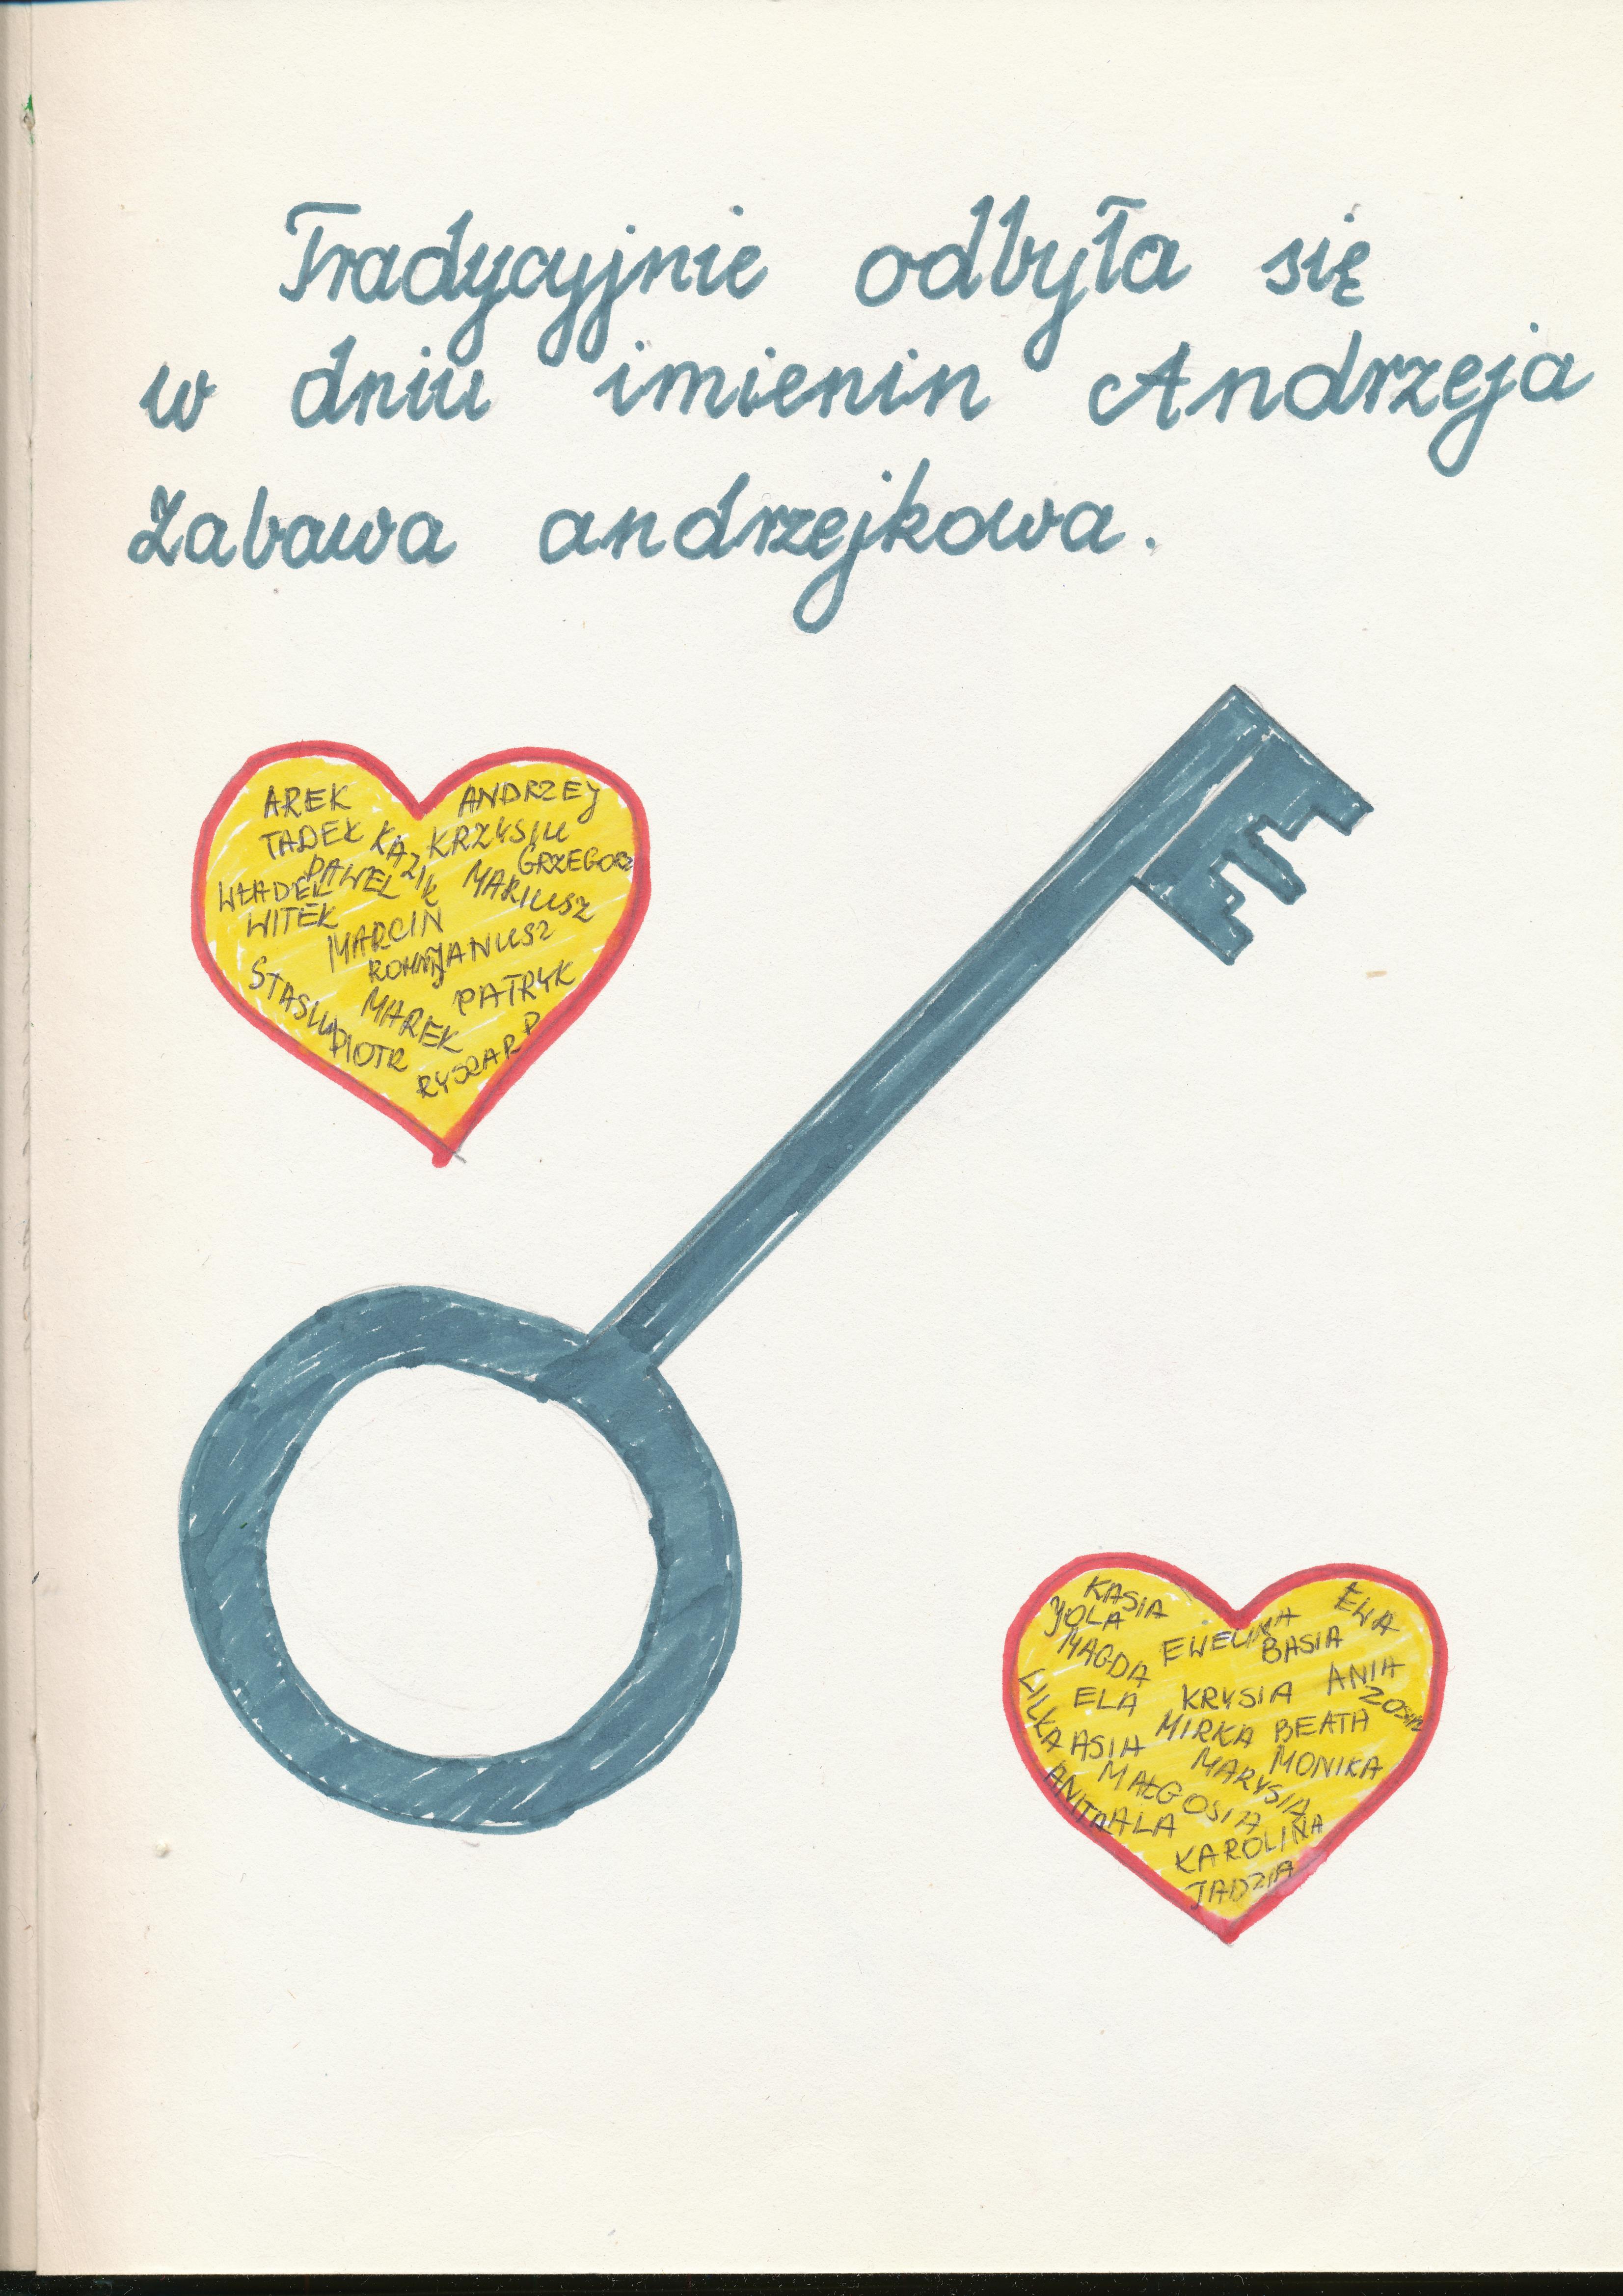 Tradycyjnie odbyła się
w dniu imienin Andrzeja
Zabawa andrzejkowa.
AREK ANDRZEJ
TADEK KAZIK KRZYSIU
PAWEL GRZEGORZ
WŁADEK MARIUSZ
WITEK
MARCIN
ROMAN JANUSZ
STASIU MAREK PATRYK
PIOTR
RYSZARD
KASIA EWA
JOLA EWELINA
MAGDA BASIA
LILKA ELA KRYSIA ANIA
ZOSIA
ASIA MIRKA BEATA
MARYSIA MONIKA
ANITA MAŁGOSIA
ALA
KAROLINA
JADZIA